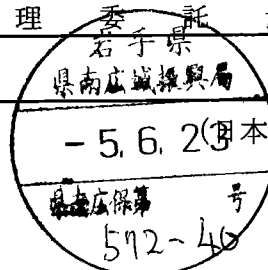 理 委 託
岩手県
県南広域振興局
-5.6.23
(日本
県南広保第 号
572-40